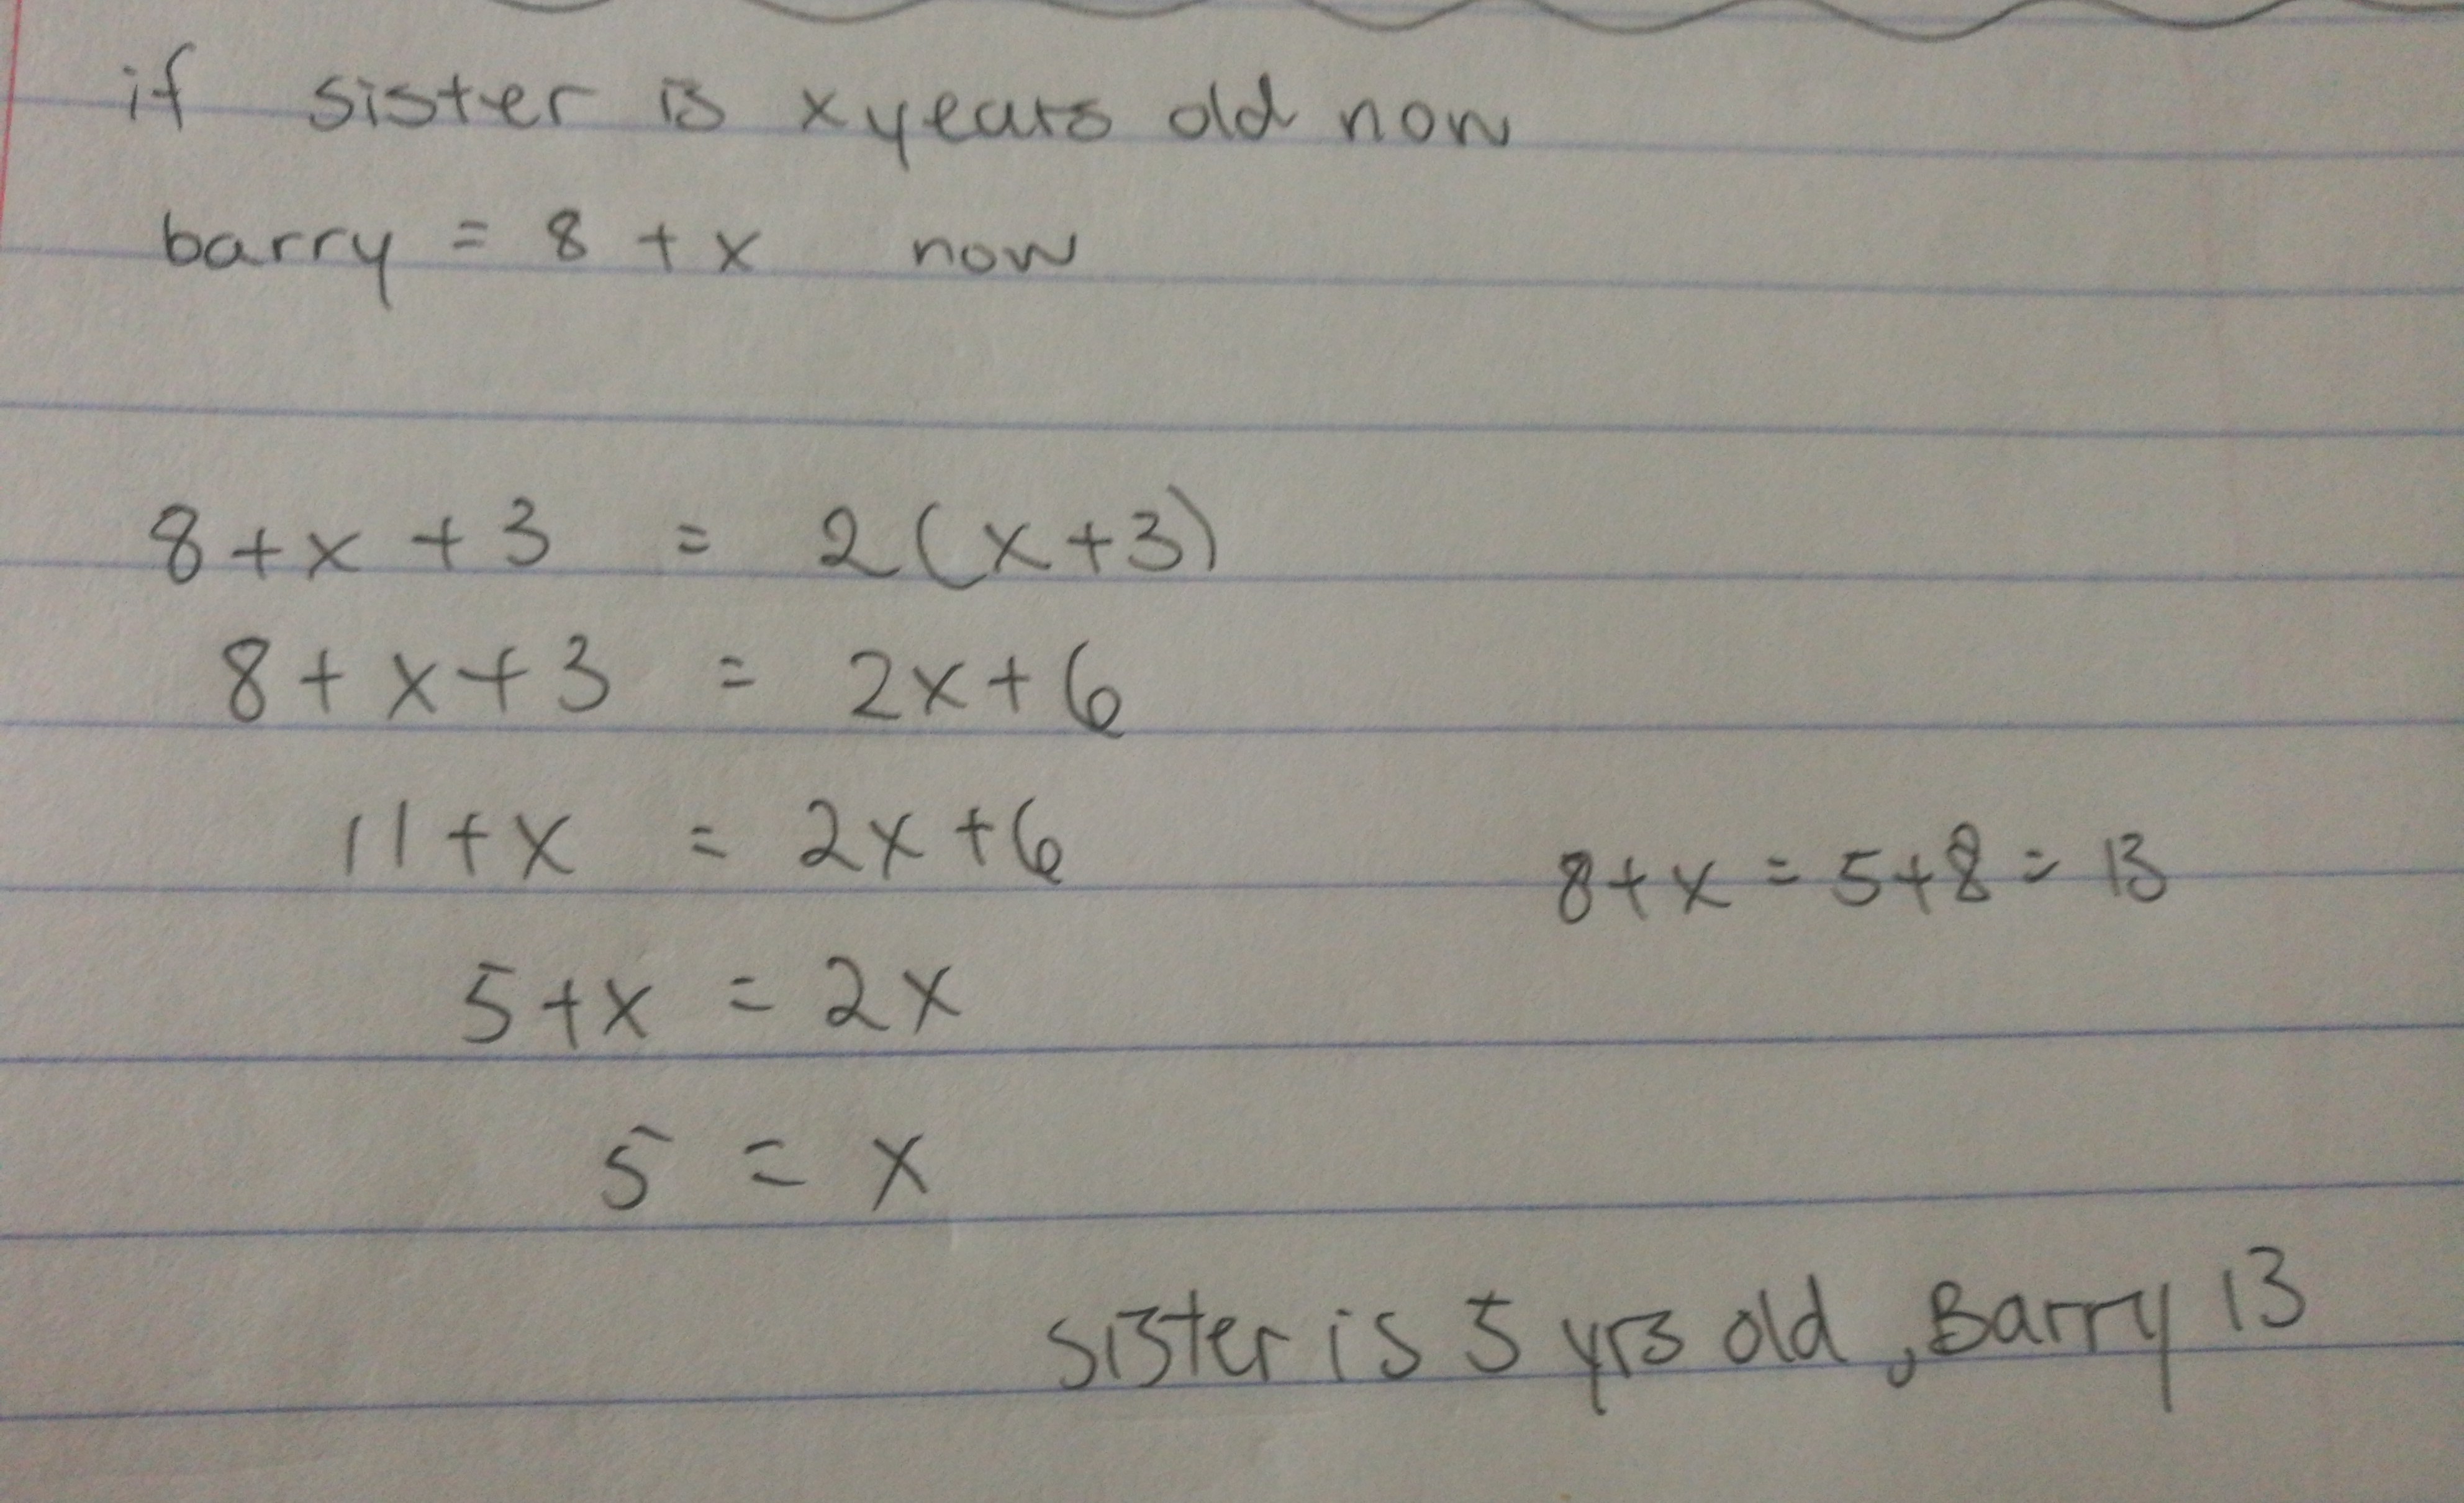 if sister is x years old now
barry = 8 + x now
8 + x + 3 = 2(x+3)
8 + x + 3 = 2x + 6
11 + x = 2x + 6
8 + x = 5 + 8 = 13
5 + x = 2x
5 = x
sister is 5 yrs old, Barry 13